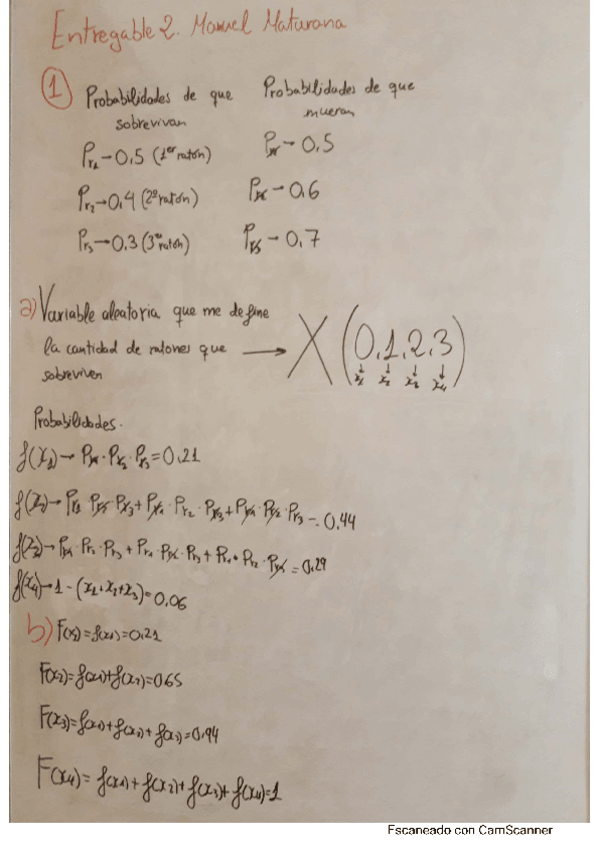 Entregable 2. Manuel Maturana
1 Probabilidades de que sobrevivan
Probabilidades de que mueran
Pr1→0,5 (1er ratón)
P̸r1→0,5
Pr2→0,4 (2º ratón)
P̸r2→0,6
Pr3→0,3 (3er ratón)
P̸r3→0,7
a) Variable aleatoria que me define
la cantidad de ratones que
sobreviven → X (0,1,2,3)
x1 x2 x3 x4
Probabilidades.
f(x1)→ P̸r1·P̸r2·P̸r3=0,21
f(x2)→ Pr1·P̸r2·P̸r3+P̸r1·Pr2·P̸r3+P̸r1·P̸r2·Pr3=0,44
f(x3)→P̸r1·Pr2·Pr3+Pr1·P̸r2·Pr3+Pr1·Pr2·P̸r3=0,29
f(x4)→1-(x1+x2+x3)=0,06
b) F(x1)=f(x1)=0,21
F(x2)=f(x1)+f(x2)=0,65
F(x3)=f(x1)+f(x2)+f(x3)=0,94
F(x4)=f(x1)+f(x2)+f(x3)+f(x4)=1
Escaneado con CamScanner